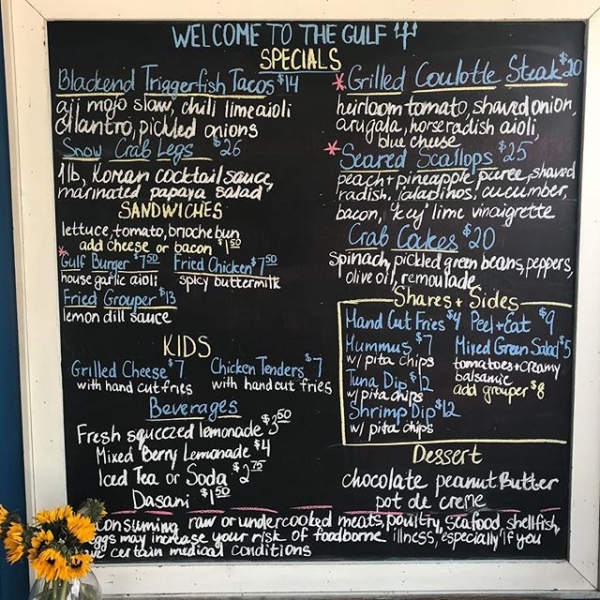 WELCOME TO THE GULF
SPECIALS
Blackend Triggerfish Tacos $14
aji mojo slaw, chili lime aioli
cilantro, pickled onions
Snow Crab Legs $26
1 lb, Korean cocktail sauce,
marinated papaya salad
SANDWICHES
lettuce, tomato, brioche bun
add cheese or bacon $1.50
*Gulf Burger $7.50 Fried Chicken $7.50
house garlic aioli spicy buttermilk
Fried Grouper $13
lemon dill sauce
KIDS
Grilled Cheese $7 Chicken Tenders $7
with hand cut fries with hand cut fries
Beverages
Fresh squeezed lemonade $3.50
Mixed Berry Lemonade $4
Iced Tea or Soda $2.75
Dasani $1.50
*Grilled Coulotte Steak $20
heirloom tomato, shaved onion,
arugala, horseradish aioli,
blue cheese
*Seared Scallops $25
peach + pineapple puree, shaved
radish, jalapinos, cucumber,
bacon, key lime vinaigrette
Crab Cakes $20
Spinach, pickled green beans, peppers,
olive oil, remoulade
Shares + Sides
Hand Cut Fries $4 Peel + Eat $9
Hummus $7 Mixed Green Salad $5
w/ pita chips tomatoes + creamy
Tuna Dip $12 balsamic
w/ pita chips add grouper $8
Shrimp Dip $12
w/ pita chips
Dessert
chocolate peanut butter
pot de creme
consuming raw or undercooked meats, poultry, seafood, shellfish,
eggs may increase your risk of foodborne illness, especially if you
certain medical conditions